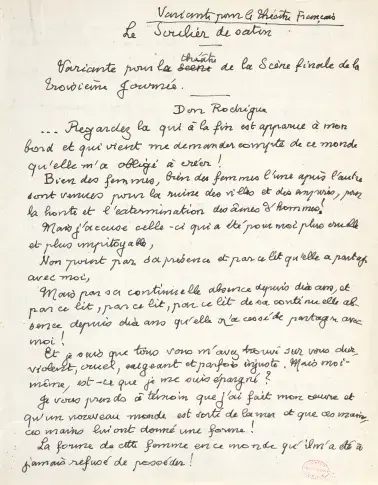 Variante pour le théâtre Français
Le Soulier de satin
théâtre
Variante pour la scène de la Scène finale de la
troisième Journée.
Don Rodrigue
... Regardez la qui à la fin est apparue à mon
bord et qui vient me demander compte de ce monde
qu'elle m'a obligé à créer!
Bien des femmes, bien des femmes l'une après l'autre
sont venues pour la ruine des villes et des empires, pour
la honte et l'extermination des âmes d'hommes!
Mais j'accuse celle-ci qui a été pour moi plus cruelle
et plus impitoyable,
Non point par sa présence et par ce lit qu'elle a partagé
avec moi,
Mais par sa continuelle absence depuis dix ans, et
par ce lit, par ce lit, par ce lit de sa continuelle ab-
sence depuis dix ans qu'elle n'a cessé de partager avec
moi!
Et je sais que tous vous m'avez trouvé sur vous dur,
violent, cruel, exigeant et parfois injuste. Mais moi-
même, est-ce que je me suis épargné?
Je vous prends à témoin que j'ai fait mon œuvre et
qu'un nouveau monde est sorti de la mer et que ces mains,
ces mains lui ont donné une forme!
La forme de cette femme en ce monde qu'il m'a été à
jamais refusé de posséder!